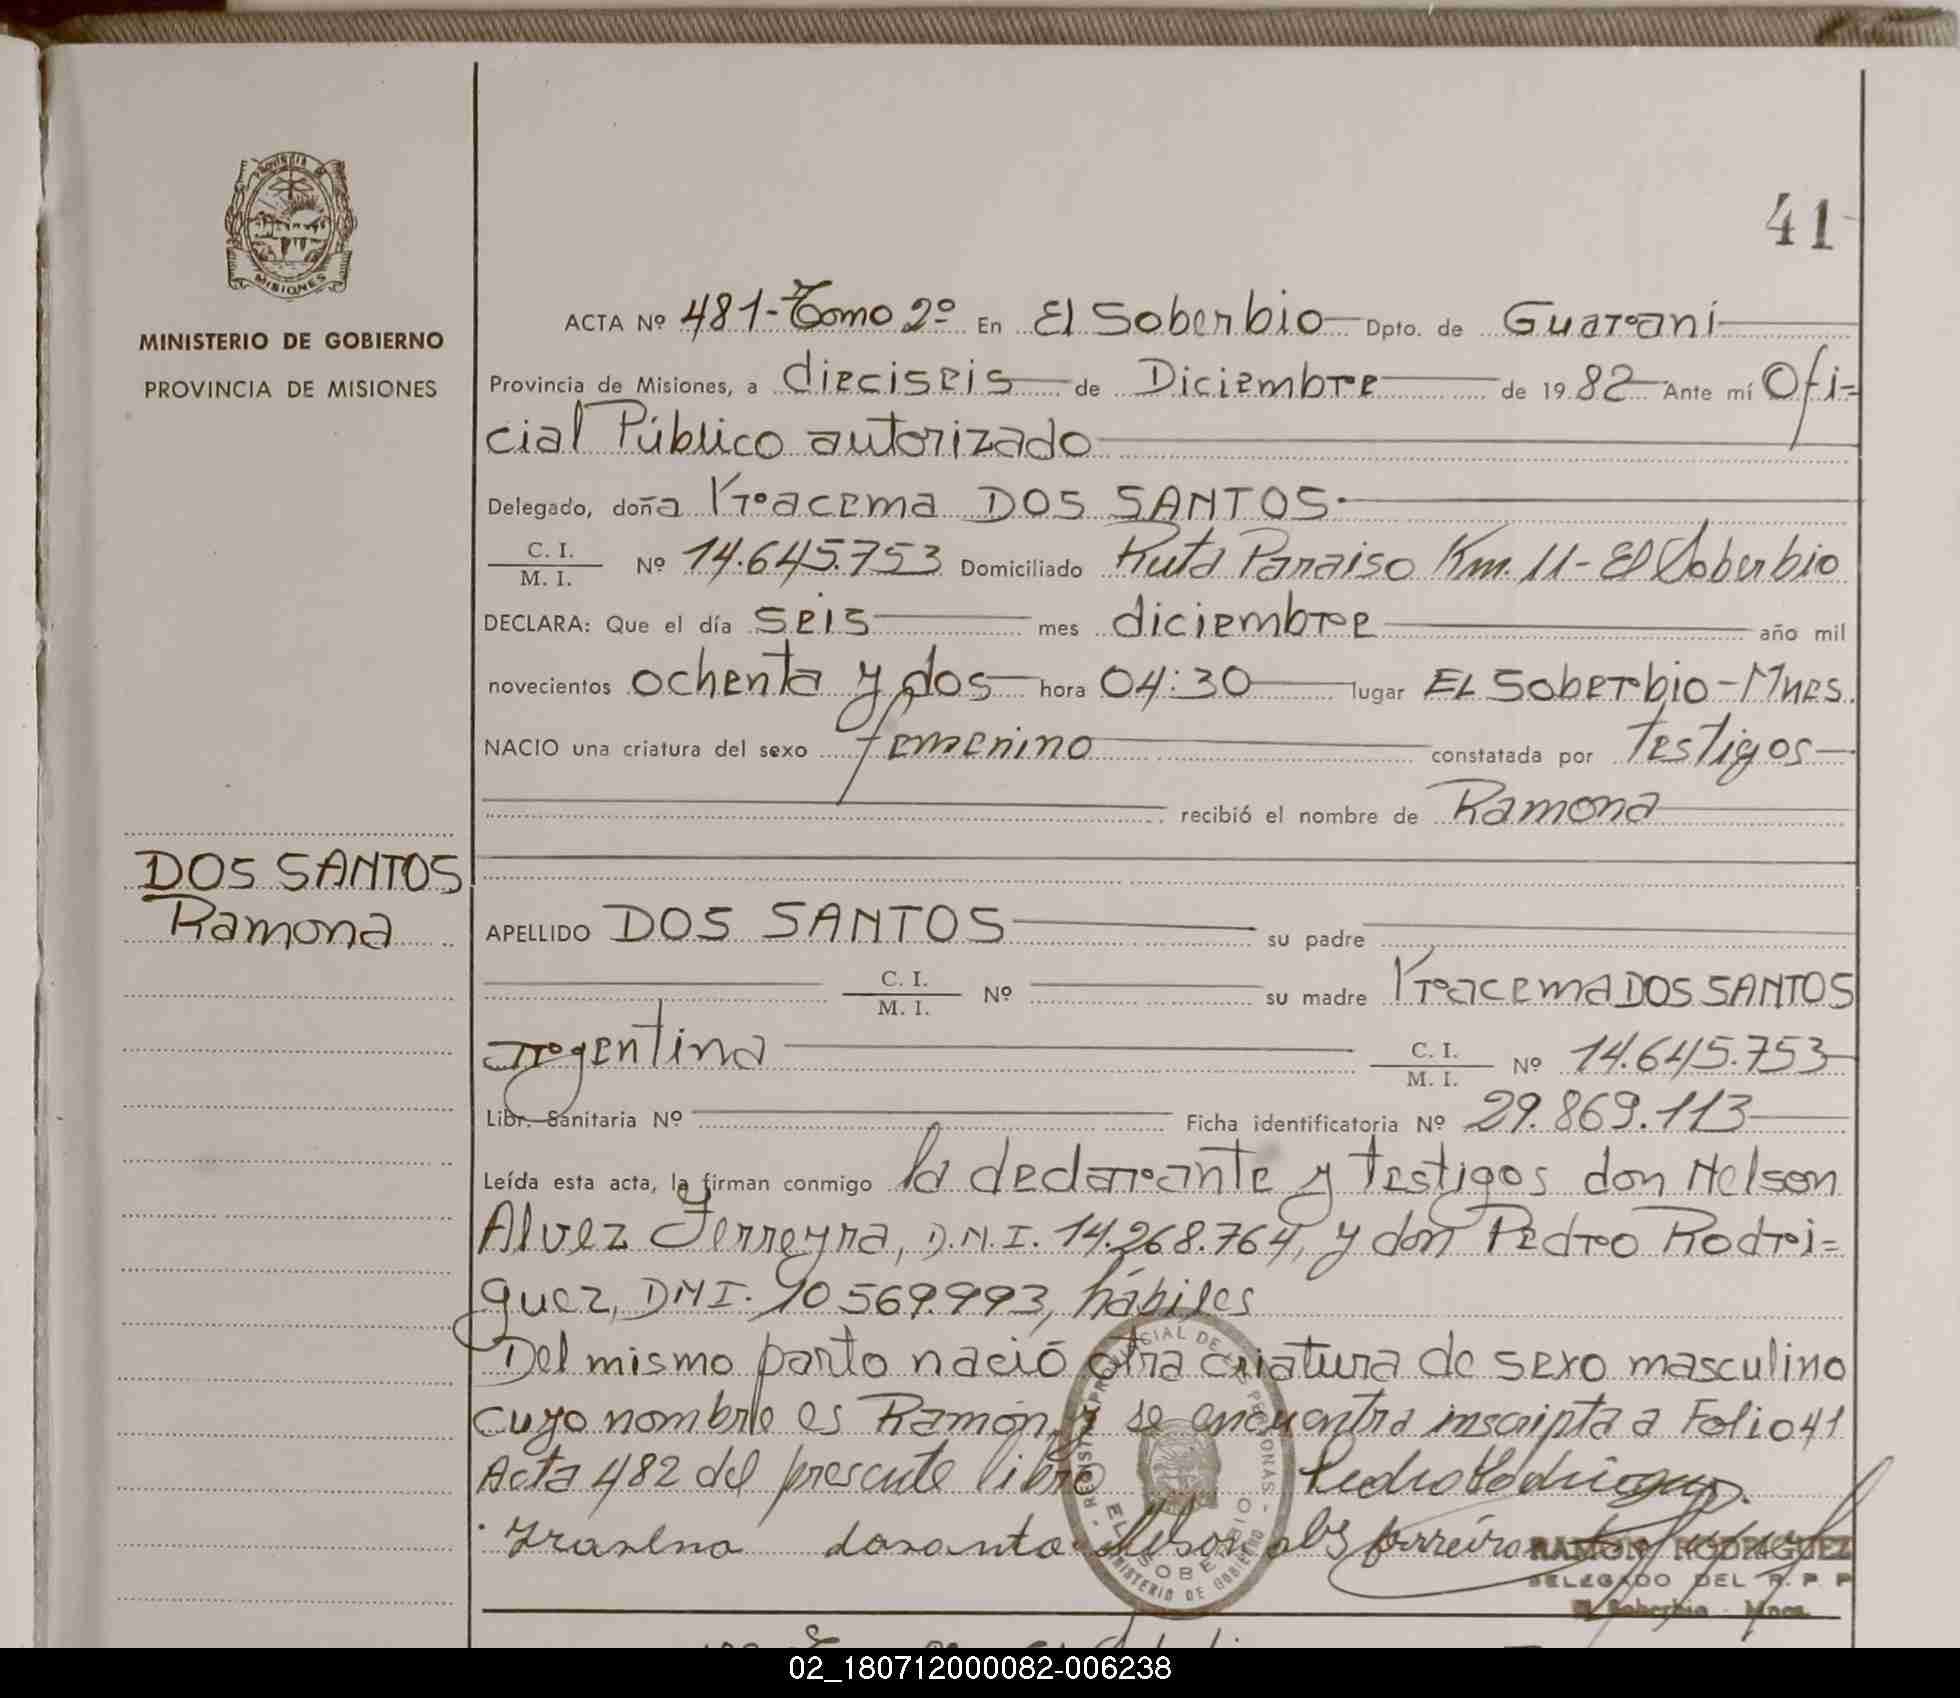 PROVINCIA DE
MISIONES
MINISTERIO DE GOBIERNO
PROVINCIA DE MISIONES
41
ACTA Nº 481-Tomo 2º En El Soberbio Dpto. de Guaraní
Provincia de Misiones, a dieciseis de Diciembre de 1982 Ante mí Ofi=
cial Público autorizado
Delegado, doña Yracema DOS SANTOS.
C. I.
M. I. Nº 14.645.753 Domiciliado Ruta Paraiso Km. 11- El Soberbio
DECLARA: Que el día seis mes diciembre año mil
novecientos ochenta y dos hora 04:30 lugar EL Soberbio-Mnes.
NACIO una criatura del sexo femenino constatada por testigos
recibió el nombre de Ramona
DOS SANTOS
Ramona
APELLIDO DOS SANTOS su padre
C. I.
M. I. Nº su madre Yracema DOS SANTOS
argentina C. I.
M. I. Nº 14.645.753
Libr. Sanitaria Nº Ficha identificatoria Nº 29.869.113
Leída esta acta, la firman conmigo la declarante y testigos don Nelson
Alvez Ferreyra, D.N.I. 14.268.764, y don Pedro Rodri=
guez, DNI. 10 569.993, hábiles
Del mismo parto nació otra criatura de sexo masculino
cuyo nombre es Ramón, y se encuentra inscripta a Folio 41
Acta 482 del presente libro
Pedro Rodriguez.
RAMON RODRIGUEZ
DELEGADO DEL R. P. P
El Soberbio - Mnes.
02_180712000082-006238